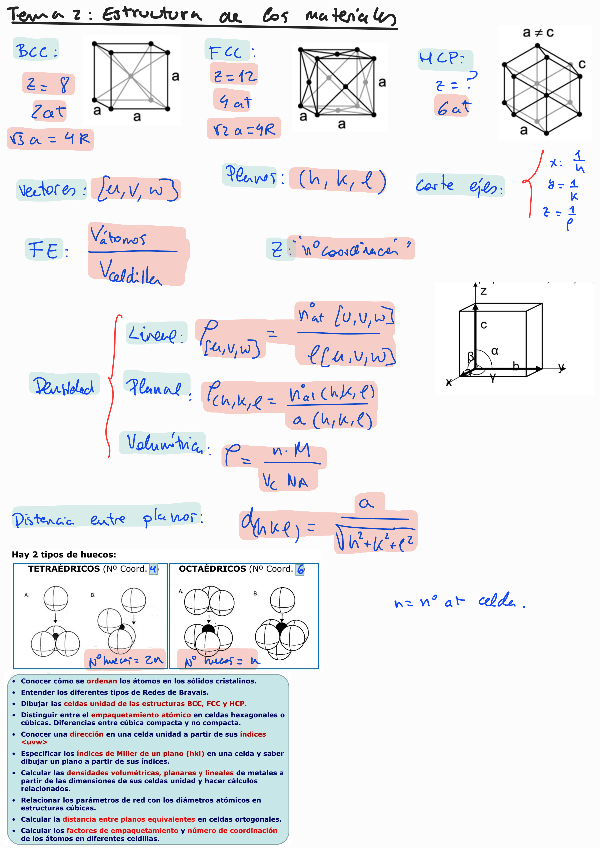 Tema 2: Estructura de los materiales
BCC:
Z = 8
2at
√3 a = 4R
a
a
a
FCC:
Z = 12
4 at
√2 a = 4R
a
a
a
HCP:
Z = ?
6 at
a ≠ c
c
a
Vectores: [u, v, w]
Planos: (h, k, l)
Corte ejes:
x: 1/h
y = 1/k
z = 1/l
FE: Vátomos / Vceldilla
Z: "nº coordinación"
Densidad
Lineal: ρ[u,v,w] = nºat [u,v,w] / l[u,v,w]
Planar: ρ(h,k,l) = nºat (h,k,l) / a (h,k,l)
Volumétrica: ρ = n · M / Vc NA
z
c
β
α
a
b
y
x
γ
Distancia entre planos: d(hkl) = a / √h²+k²+l²
Hay 2 tipos de huecos:
TETRAÉDRICOS (Nº Coord. 4)
A.
B.
Nº huecos = 2n
OCTAÉDRICOS (Nº Coord. 6)
A.
B.
Nº huecos = n
n = nº at celda.
• Conocer cómo se ordenan los átomos en los sólidos cristalinos.
• Entender los diferentes tipos de Redes de Bravais.
• Dibujar las celdas unidad de las estructuras BCC, FCC y HCP.
• Distinguir entre el empaquetamiento atómico en celdas hexagonales o
cúbicas. Diferencias entre cúbica compacta y no compacta.
• Conocer una dirección en una celda unidad a partir de sus índices
<uvw>
• Especificar los índices de Miller de un plano (hkl) en una celda y saber
dibujar un plano a partir de sus índices.
• Calcular las densidades volumétricas, planares y lineales de metales a
partir de las dimensiones de sus celdas unidad y hacer cálculos
relacionados.
• Relacionar los parámetros de red con los diámetros atómicos en
estructuras cúbicas.
• Calcular la distancia entre planos equivalentes en celdas ortogonales.
• Calcular los factores de empaquetamiento y número de coordinación
de los átomos en diferentes celdillas.